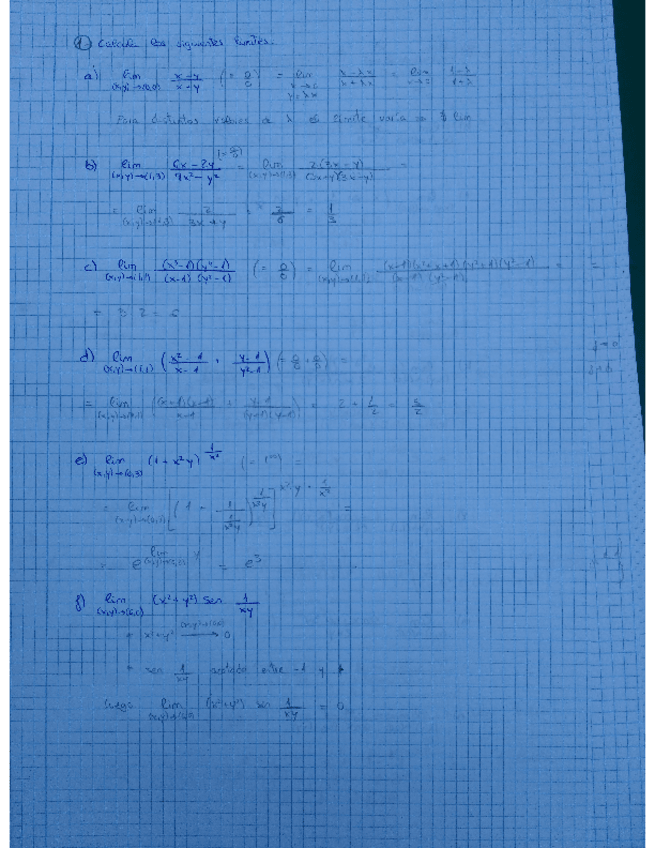 ① Calcula los siguientes límites.
a) lim (x,y)→(0,0) (x-y)/(x+y) (= 0/0) = lim x→0 y=λx (x-λx)/(x+λx) = lim x→0 (1-λ)/(1+λ)
Para distintos valores de λ el límite varía ⇒ ∄ lim
b) lim (x,y)→(1,3) (6x-2y)/(9x²-y²) (= 0/0) = lim (x,y)→(1,3) 2(3x-y)/(3x+y)(3x-y) =
= lim (x,y)→(1,3) 2/(3x+y) = 2/6 = 1/3
c) lim (x,y)→(1,1) (x³-1)(y⁴-1)/(x-1)(y²-1) (= 0/0) = lim (x,y)→(1,1) (x-1)(x²+x+1)(y²+1)(y²-1)/(x-1)(y²-1) = =
= 3 2 = 6
d) lim (x,y)→(1,1) ((x²-1)/(x-1) + (y-1)/(y²-1)) (= 0/0 + 0/0) =
= lim (x,y)→(1,1) ((x+1)(x-1)/(x-1) + (y-1)/(y+1)(y-1)) = 2 + 1/2 = 5/2
e) lim (x,y)→(0,3) (1+x²y)^(1/x²) (= 1^∞) =
= lim (x,y)→(0,3) [(1 + 1/(1/x²y))^(1/x²y)]^(x²·y·1/x²) =
= e^(lim (x,y)→(0,3) y) = e³
f) lim (x,y)→(0,0) (x²+y²) sen 1/xy
• x²+y² (x,y)→(0,0) → 0
• sen 1/xy acotado entre -1 y 1
Luego lim (x,y)→(0,0) (x²+y²) sen 1/xy = 0